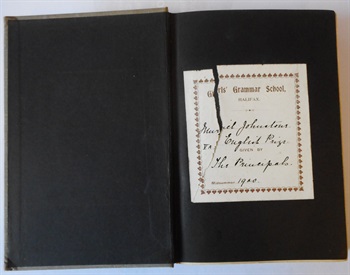 Girls' Grammar School,
HALIFAX.
Muriel Johnstone
English Prize.
GIVEN BY
The Principals.
Midsummer, 1900.